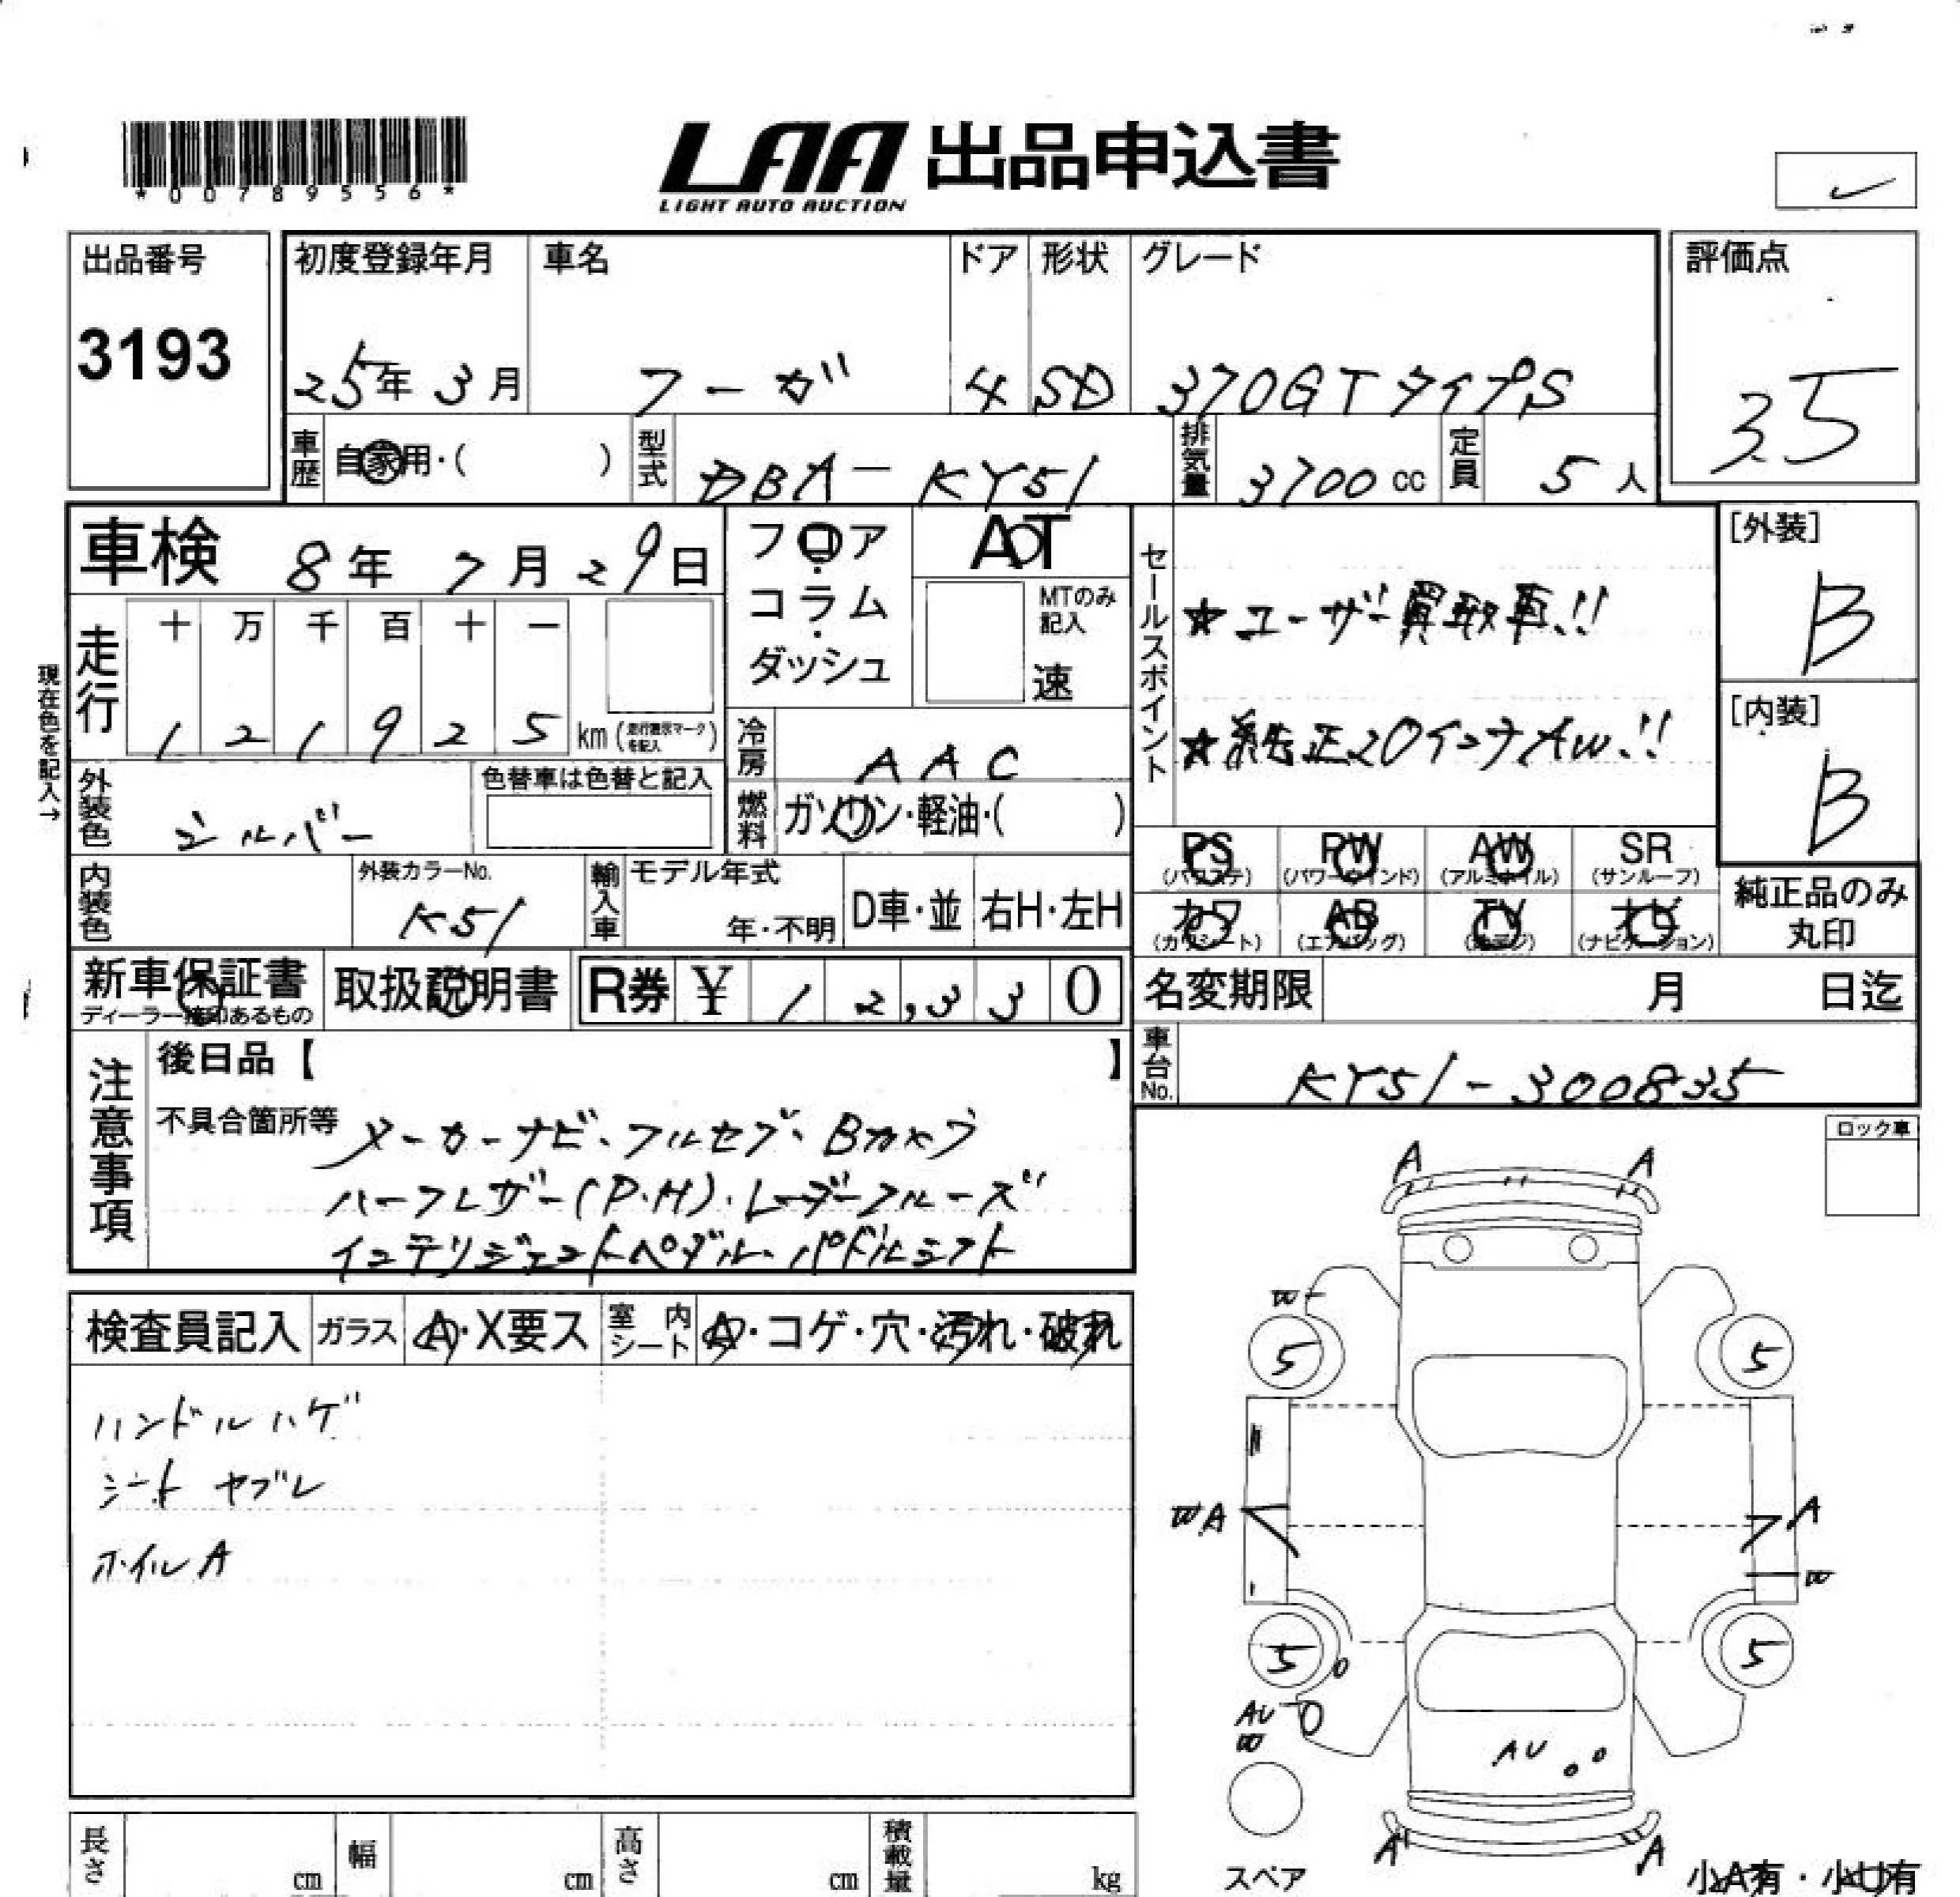 *00789556*
LAA 出品申込書
LIGHT AUTO AUCTION
出品番号
3193
初度登録年月
25年 3月
車名
フーガ
ドア
4
形状
SD
グレード
370GTタイプS
評価点
35
車歴
自家用・( )
型式
DBA-KY51
排気量
3700 cc
定員
5人
車検 8年 7月 29日
フロア・コラム・ダッシュ
AT
MTのみ記入
速
セールスポイント
★ユーザー買取車!!
★純正20インチAW!!
[外装]
B
[内装]
B
現在色を記入→
走行
十 万 千 百 十 一
1 2 1 9 2 5 km (走行表示マークを記入)
冷房
AAC
外装色
シルバー
色替車は色替と記入
燃料
ガソリン・軽油・( )
PS (パワステ)
PW (パワーウインド)
AW (アルミホイル)
SR (サンルーフ)
カワ (カワシート)
AB (エアバッグ)
TV (テレビ)
ナビ (ナビゲーション)
純正品のみ丸印
内装色
外装カラーNo.
K51
輸入車
モデル年式
年・不明
D車・並
右H・左H
新車保証書
ディーラー捺印あるもの
取扱説明書
R券 ¥ 12,330
名変期限 月 日迄
車台No.
KY51-300835
注意事項
後日品【 】
不具合箇所等
メーカーナビ・フルセグ・Bカメラ
ハーフレザー(P.H)・レーダークルーズ
インテリジェントペダル・パドルシフト
ロック車
検査員記入
ガラス A・X要ス
室内シート A・コゲ・穴・汚れ・破れ
ハンドルハゲ
シート ヤブレ
ホイルA
A A
W
5 5
WA A
W
5 5
AU
W
AU
A A
スペア
小A有・小U有
長さ cm
幅 cm
高さ cm
積載量 kg